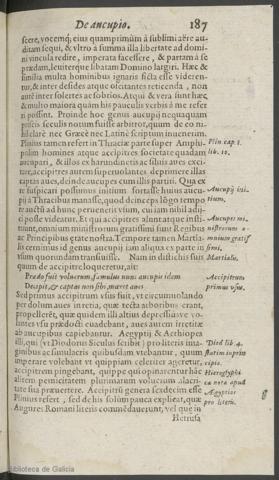 De aucupio. 187
scere, vocemq; eius quamprimùm à sublimi aëre au-
ditam sequi, & vltro à summa illa libertate ad domi-
ni vincula redire, imperata facessere, & partam à se
prædam, leuiterque libatam Domino largiri. Hæc &
similia multa hominibus ignaris ficta esse videren-
tur, & inter desides atque oscitantes reticenda, non
autē inter solertes ac sobrios. Atqui & vera sunt hæc
& multo maiora quàm his pauculis verbis à me refer
ri possint. Proinde hoc genus aucupij nequaquam
priscis seculis notum fuisse arbitror, quum de eo ni-
hil clarè nec Græcè nec Latinè scriptum inuenerim.
Plinius tamen refert in Thracię parte super Amphi-
polim homines atque accipitres societate quadam
aucupari, & illos ex harundinetis ac siluis aues exci-
tare, accipitres autem superuolantes deprimere illas
captas aues, deinde aucupes cum illis partiri. Qua ex
re suspicari possumus initium fortasse huius aucu-
pij à Thracibus manasse, quod deinceps lōgo tempo
re auctū ad hunc peruenerit vsum, cui iam nihil adij-
ci posse videatur. Et qui accipitres alunt atque insti-
tuunt, omnium ministrorum gratissimi sunt Regibus
ac Principibus ętate nostra. Tempore tamen Martia-
lis cernimus id genus aucupij iam aliqua ex parte in
vsum quorundam transiuisse. Nam in distichis suis
quum de accipitre loqueretur, ait:
Prædo fuit volucrum, famulus nunc aucupis idem
Decipit, & captas non sibi, mœret aues.
Sed primus accipitrum vsus fuit, vt circumuolando
per dolum aues in recta, quæ tecta arboribus erant,
propellerēt, quæ quidem illi altius depressiúsve vo-
lantes vt sprædocti euadebant, aues autem irretitæ
ab aucupibus capiebantur. Aegyptij & Aethiopes
illi, qui (vt Diodorus Siculus scribit) pro literis ima-
ginibus ac simulacris quibusdam vtebantur, quum
imperare volebant vt quippiam celeriter ageretur,
accipitrem pingebant, quippe qui opinarentur hāc
alitem pernicitatem plurimarum volucrum alacri-
tate sua præuertere. Accipitrū genera sexdecim esse
Plinius refert, sed de his solùm pauca explicat, quæ
Augures Romani literis commēdauerunt, vel quæ in
Hetrusa
Plin cap. 8.
lib. 10.
Aucupij ini-
tium.
Aucupes mi-
nistrorum o-
mnium gratis
simi.
Martialis.
Accipitrum
primus vsus.
Diod lib 4.
statim in prin
cipio.
Hieroglyphi
ca nota apud
Aegyptios
pro literis.
Biblioteca de Galicia